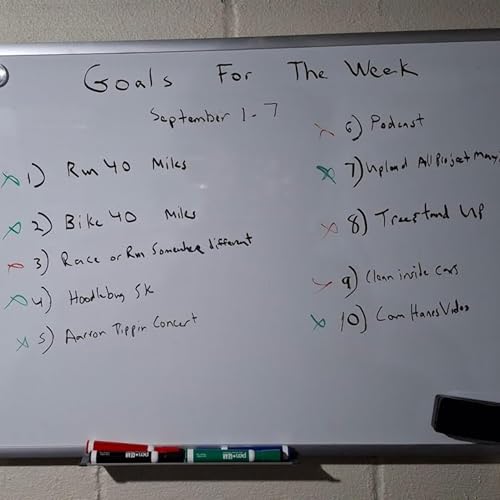 Goals For The Week
September 1-7
1) Run 40 Miles
2) Bike 40 Miles
3) Race or Run Somewhere different
4) Hoodlebug 5k
5) Aarron Tippin Concert
6) Podcast
7) Upload All Project
8) Treestand Up
9) Clean inside Cars
10) Cam Hanes Video